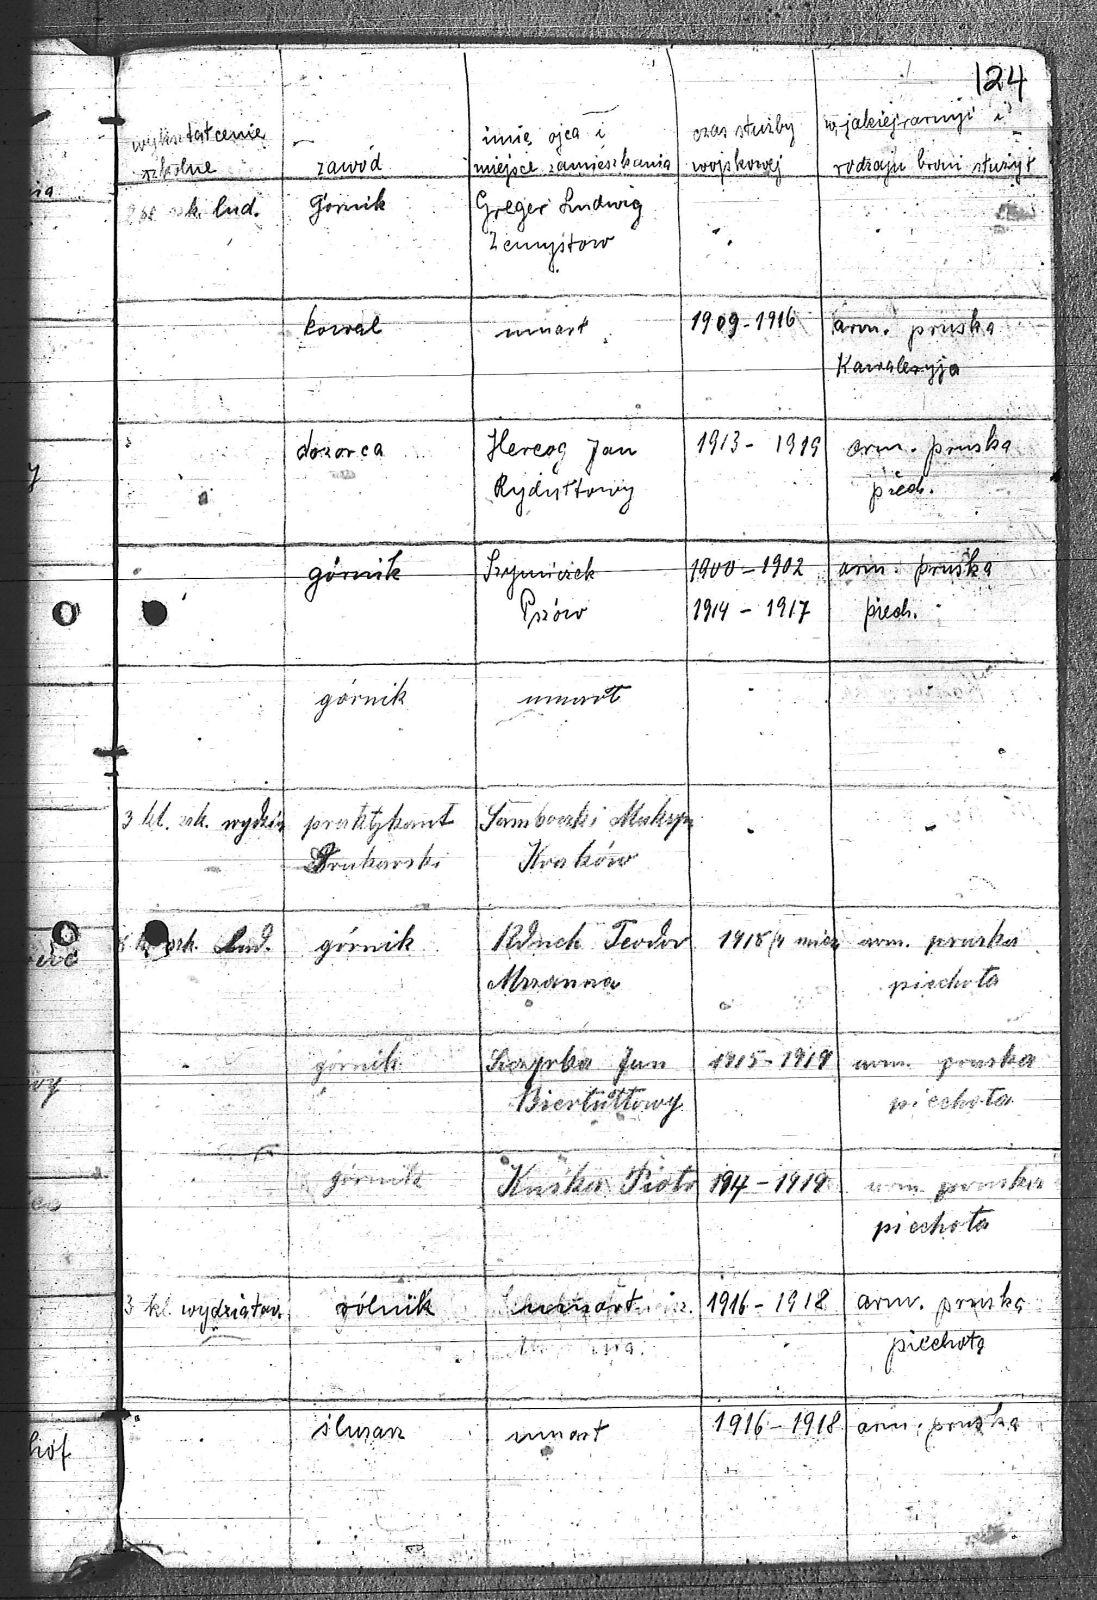 124
wykształcenie szkolne
zawód
imię ojca i miejsce zamieszkania
czas służby wojskowej
w jakiej armji i rodzaju broni służył
szk. lud. górnik Greger Ludwig
kowal umarł 1909-1916 arm. pruska
Kawaleryja
dozorca Hercog Jan 1913 - 1919 arm. pruska
Rydułtowy piech.
górnik Szymiczek 1900-1902 arm. pruska
Pszów 1914 - 1917 piech.
górnik umarł
3 kl. szk. wydział praktykant
Drukarski Kraków
szk. lud. górnik Teodor 1918 arm. pruska
Mszanna piechota
górnik Szczyrba Jan 1915-1919 arm. pruska
Biertułtowy piechota
górnik Kuśka Piotr 194-1919 arm. pruska
piechota
3 kl. wydziałow. rólnik umarł 1916-1918 arm. pruska
piechota
ślusarz umarł 1916-1918 arm. pruska
hof